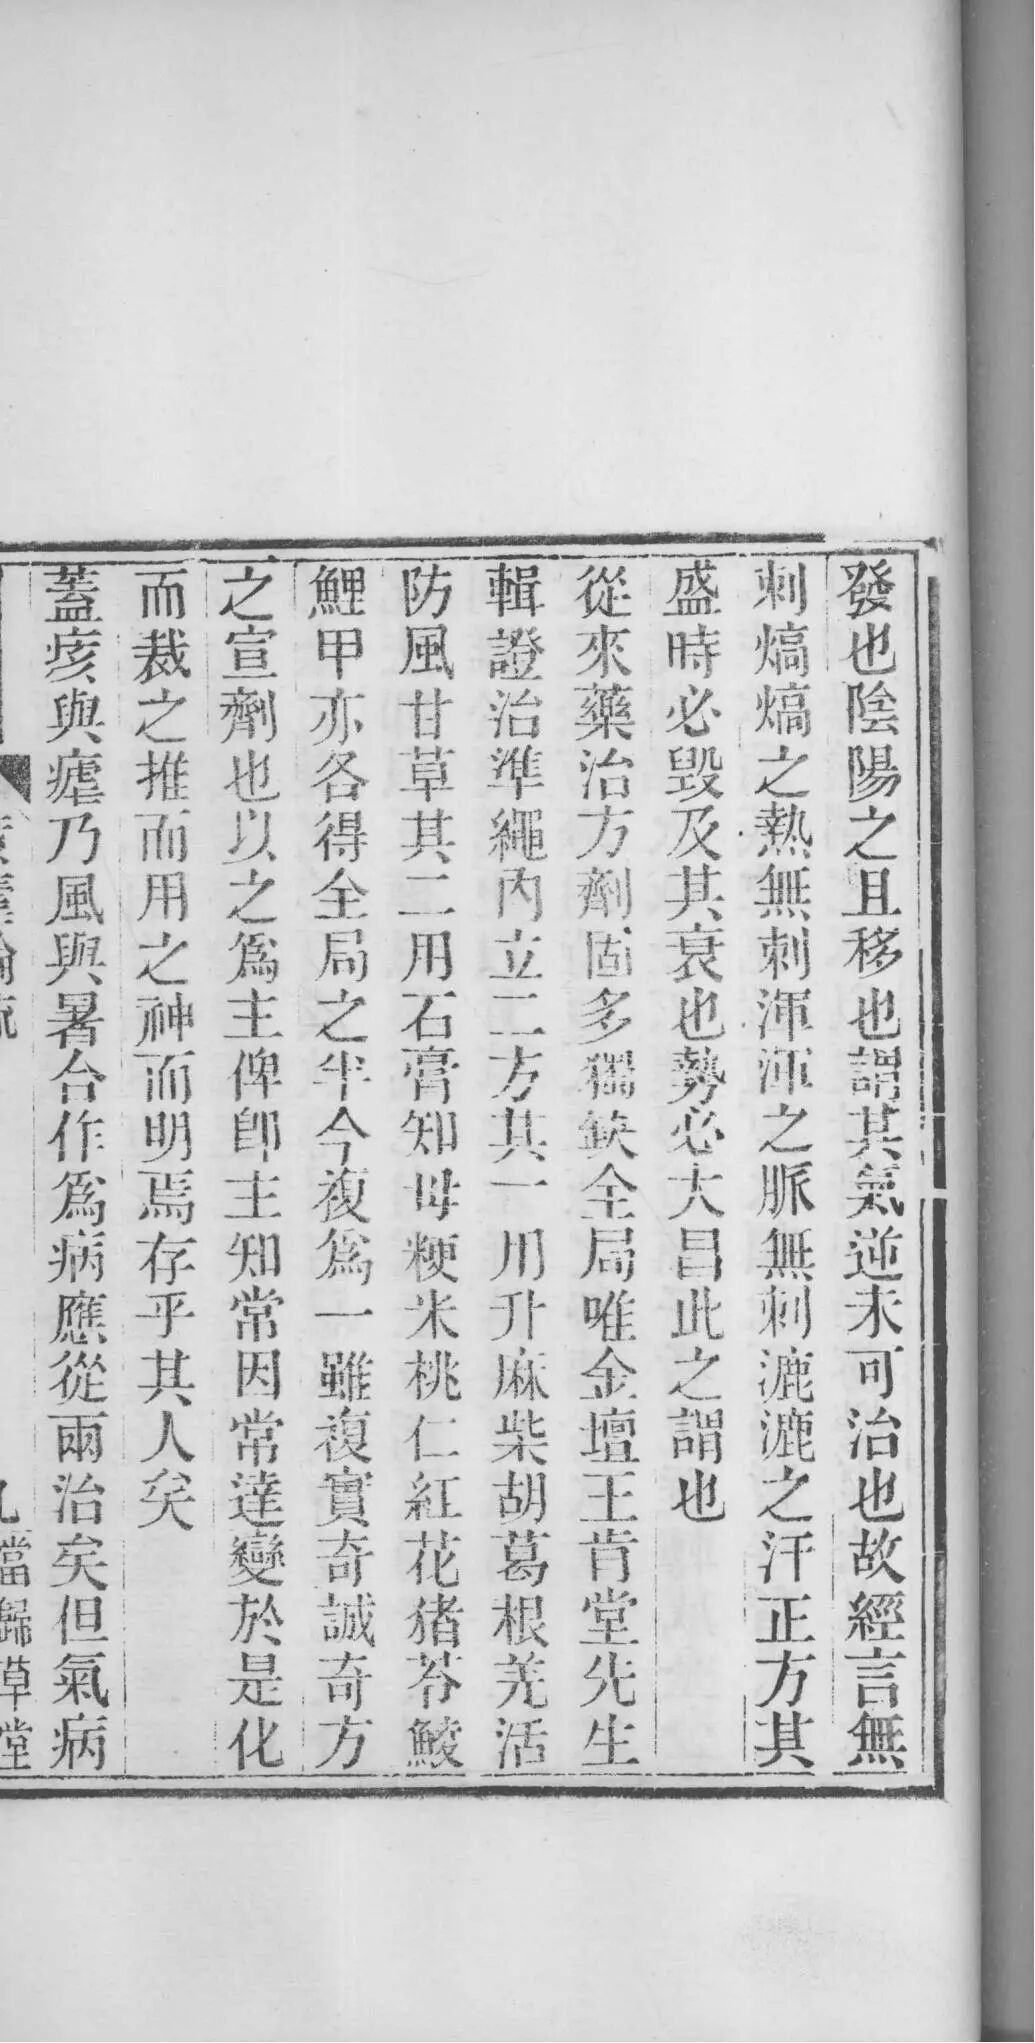 發也陰陽之且移也謂其氣逆未可治也故經言無
刺熇熇之熱無刺渾渾之脈無刺漉漉之汗正方其
盛時必毀及其衰也勢必大昌此之謂也
從來藥治方劑固多獨缺全局唯金壇王肯堂先生
輯證治準繩內立二方其一用升麻柴胡葛根羌活
防風甘草其二用石膏知母粳米桃仁紅花猪苓鯪
鯉甲亦各得全局之半今複爲一雖複實奇誠奇方
之宣劑也以之爲主俾卽主知常因常達變於是化
而裁之推而用之神而明焉存乎其人矣
蓋痎與瘧乃風與暑合作爲病應從兩治矣但氣病
九當歸草堂